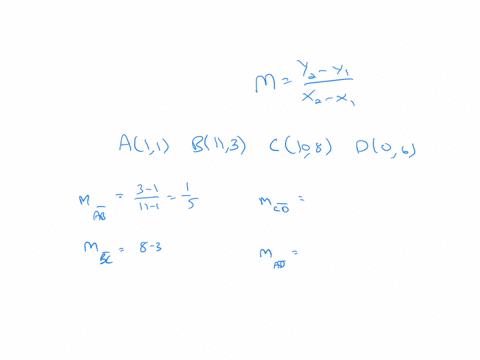 m = y₂ - y₁ / x₂ - x₁
A(1,1) B(11,3) C(10,8) D(0,6)
m_AB = 3-1 / 11-1 = 1/5 m_CD =
m_BC = 8-3 m_AD =